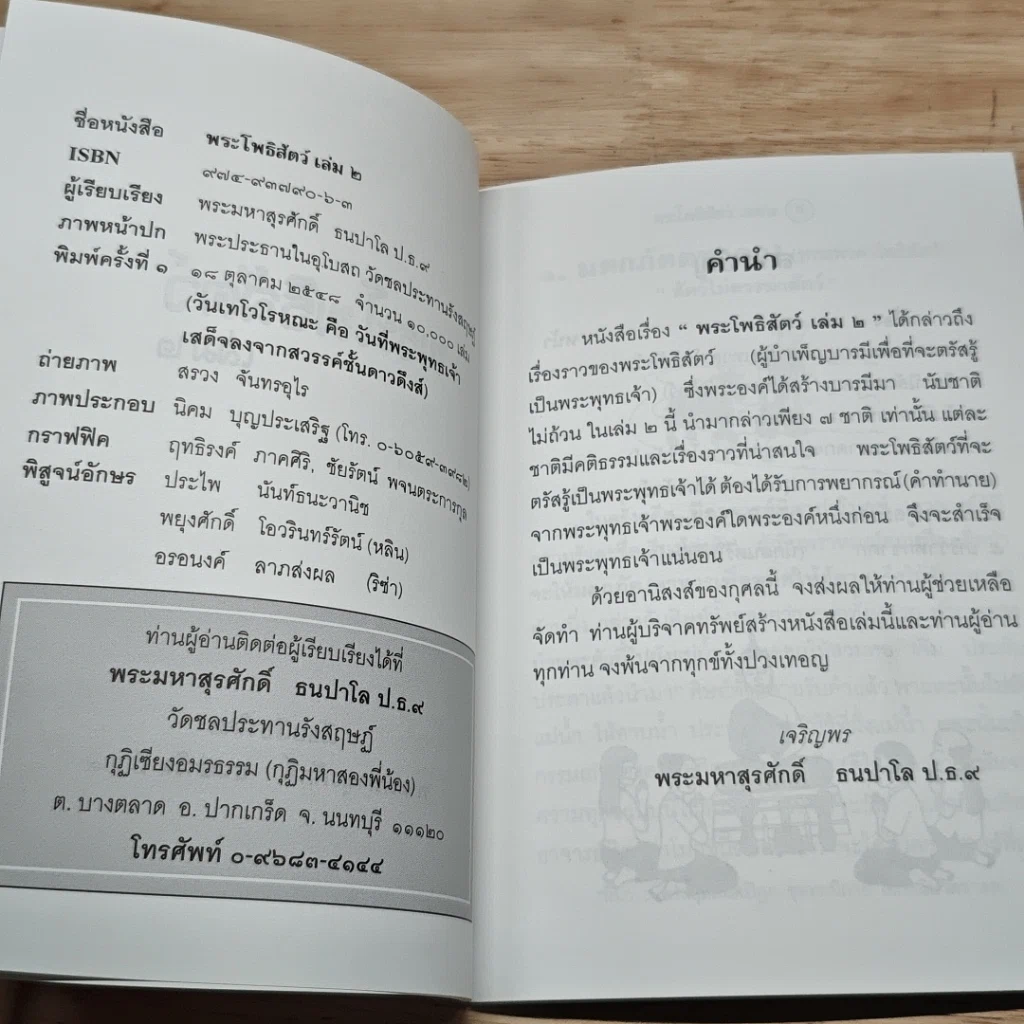 ชื่อหนังสือ พระโพธิสัตว์ เล่ม ๒
ISBN ๙๗๔-๙๓๗๙๐-๖-๓
ผู้เรียบเรียง พระมหาสุรศักดิ์ ธนปาโล ป.ธ.๙
ภาพหน้าปก พระประธานในอุโบสถ วัดชลประทานรังสฤษฎ์
พิมพ์ครั้งที่ ๑ ๑๘ ตุลาคม ๒๕๔๘ จำนวน ๑๐,๐๐๐ เล่ม
(วันเทโวโรหณะ คือ วันที่พระพุทธเจ้า
เสด็จลงจากสวรรค์ชั้นดาวดึงส์)
ถ่ายภาพ สรวง จันทรอุไร
ภาพประกอบ นิคม บุญประเสริฐ (โทร. ๐-๖๐๕๙-๓๙๘๒)
กราฟฟิค ฤทธิรงค์ ภาคศิริ, ชัยรัตน์ พจนตระการกุล
พิสูจน์อักษร ประไพ นันท์ธนะวานิช
พยุงศักดิ์ โอวรินทร์รัตน์ (หลิน)
อรอนงค์ ลาภส่งผล (ริซ่า)
ท่านผู้อ่านติดต่อผู้เรียบเรียงได้ที่
พระมหาสุรศักดิ์ ธนปาโล ป.ธ.๙
วัดชลประทานรังสฤษฎ์
กุฏิเซียงอมรธรรม (กุฏิมหาสองพี่น้อง)
ต. บางตลาด อ. ปากเกร็ด จ. นนทบุรี ๑๑๑๒๐
โทรศัพท์ ๐-๙๖๘๓-๔๑๔๔
คำนำ
หนังสือเรื่อง “ พระโพธิสัตว์ เล่ม ๒ ” ได้กล่าวถึง
เรื่องราวของพระโพธิสัตว์ (ผู้บำเพ็ญบารมีเพื่อที่จะตรัสรู้
เป็นพระพุทธเจ้า) ซึ่งพระองค์ได้สร้างบารมีมา นับชาติ
ไม่ถ้วน ในเล่ม ๒ นี้ นำมากล่าวเพียง ๗ ชาติ เท่านั้น แต่ละ
ชาติมีคติธรรมและเรื่องราวที่น่าสนใจ พระโพธิสัตว์ที่จะ
ตรัสรู้เป็นพระพุทธเจ้าได้ ต้องได้รับการพยากรณ์ (คำทำนาย)
จากพระพุทธเจ้าพระองค์ใดพระองค์หนึ่งก่อน จึงจะสำเร็จ
เป็นพระพุทธเจ้าแน่นอน
ด้วยอานิสงส์ของกุศลนี้ จงส่งผลให้ท่านผู้ช่วยเหลือ
จัดทำ ท่านผู้บริจาคทรัพย์สร้างหนังสือเล่มนี้และท่านผู้อ่าน
ทุกท่าน จงพ้นจากทุกข์ทั้งปวงเทอญ
เจริญพร
พระมหาสุรศักดิ์ ธนปาโล ป.ธ.๙